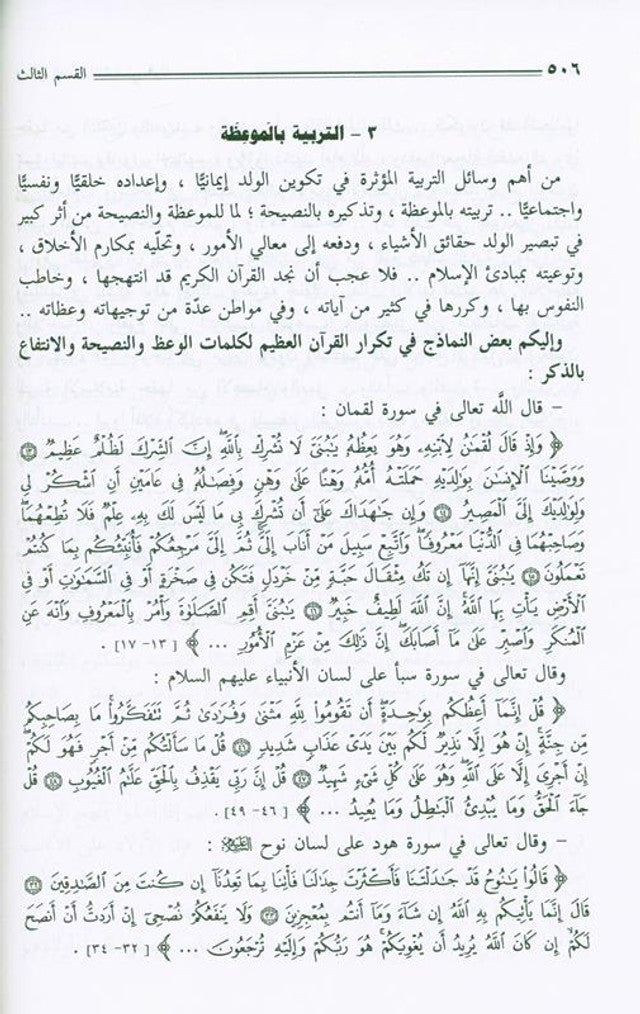 ٥٠٦ القسم الثالث
٣ - التربية بالموعظة
من أهم وسائل التربية المؤثرة في تكوين الولد إيمانيًّا ، وإعداده خلقيًّا ونفسيًّا
واجتماعيًّا .. تربيته بالموعظة ، وتذكيره بالنصيحة ؛ لما للموعظة والنصيحة من أثر كبير
في تبصير الولد حقائق الأشياء ، ودفعه إلى معالي الأمور ، وتحلّيه بمكارم الأخلاق ،
وتوعيته بمبادئ الإسلام .. فلا عجب أن نجد القرآن الكريم قد انتهجها ، وخاطب
النفوس بها ، وكررها في كثير من آياته ، وفي مواطن عدّة من توجيهاته وعظاته ..
وإليكم بعض النماذج في تكرار القرآن العظيم لكلمات الوعظ والنصيحة والانتفاع
بالذكر :
- قال اللَّه تعالى في سورة لقمان :
﴿ وَإِذْ قَالَ لُقْمَٰنُ لِٱبْنِهِۦ وَهُوَ يَعِظُهُۥ يَٰبُنَىَّ لَا تُشْرِكْ بِٱللَّهِ إِنَّ ٱلشِّرْكَ لَظُلْمٌ عَظِيمٌ ۝١٣
وَوَصَّيْنَا ٱلْإِنسَٰنَ بِوَٰلِدَيْهِ حَمَلَتْهُ أُمُّهُۥ وَهْنًا عَلَىٰ وَهْنٍ وَفِصَٰلُهُۥ فِى عَامَيْنِ أَنِ ٱشْكُرْ لِى
وَلِوَٰلِدَيْكَ إِلَىَّ ٱلْمَصِيرُ ۝١٤ وَإِن جَٰهَدَاكَ عَلَىٰٓ أَن تُشْرِكَ بِى مَا لَيْسَ لَكَ بِهِۦ عِلْمٌ فَلَا تُطِعْهُمَا
وَصَاحِبْهُمَا فِى ٱلدُّنْيَا مَعْرُوفًا وَٱتَّبِعْ سَبِيلَ مَنْ أَنَابَ إِلَىَّ ثُمَّ إِلَىَّ مَرْجِعُكُمْ فَأُنَبِّئُكُم بِمَا كُنتُمْ
تَعْمَلُونَ ۝١٥ يَٰبُنَىَّ إِنَّهَآ إِن تَكُ مِثْقَالَ حَبَّةٍ مِّنْ خَرْدَلٍ فَتَكُن فِى صَخْرَةٍ أَوْ فِى ٱلسَّمَٰوَٰتِ أَوْ فِى
ٱلْأَرْضِ يَأْتِ بِهَا ٱللَّهُ إِنَّ ٱللَّهَ لَطِيفٌ خَبِيرٌ ۝١٦ يَٰبُنَىَّ أَقِمِ ٱلصَّلَوٰةَ وَأْمُرْ بِٱلْمَعْرُوفِ وَٱنْهَ عَنِ
ٱلْمُنكَرِ وَٱصْبِرْ عَلَىٰ مَآ أَصَابَكَ إِنَّ ذَٰلِكَ مِنْ عَزْمِ ٱلْأُمُورِ ... ﴾ [ ١٣- ١٧ ] .
وقال تعالى في سورة سبأ على لسان الأنبياء عليهم السلام :
﴿ قُلْ إِنَّمَآ أَعِظُكُم بِوَٰحِدَةٍ أَن تَقُومُوا۟ لِلَّهِ مَثْنَىٰ وَفُرَٰدَىٰ ثُمَّ تَتَفَكَّرُوا۟ مَا بِصَاحِبِكُم
مِّن جِنَّةٍ إِنْ هُوَ إِلَّا نَذِيرٌ لَّكُم بَيْنَ يَدَىْ عَذَابٍ شَدِيدٍ ۝٤٦ قُلْ مَا سَأَلْتُكُم مِّنْ أَجْرٍ فَهُوَ لَكُمْ
إِنْ أَجْرِىَ إِلَّا عَلَى ٱللَّهِ وَهُوَ عَلَىٰ كُلِّ شَىْءٍ شَهِيدٌ ۝٤٧ قُلْ إِنَّ رَبِّى يَقْذِفُ بِٱلْحَقِّ عَلَّٰمُ ٱلْغُيُوبِ ۝٤٨ قُلْ
جَآءَ ٱلْحَقُّ وَمَا يُبْدِئُ ٱلْبَٰطِلُ وَمَا يُعِيدُ ... ﴾ [ ٤٦- ٤٩ ] .
- وقال تعالى في سورة هود على لسان نوح عليه السلام :
﴿ قَالُوا۟ يَٰنُوحُ قَدْ جَٰدَلْتَنَا فَأَكْثَرْتَ جِدَٰلَنَا فَأْتِنَا بِمَا تَعِدُنَآ إِن كُنتَ مِنَ ٱلصَّٰدِقِينَ ۝٣٢
قَالَ إِنَّمَا يَأْتِيكُم بِهِ ٱللَّهُ إِن شَآءَ وَمَآ أَنتُم بِمُعْجِزِينَ ۝٣٣ وَلَا يَنفَعُكُمْ نُصْحِىٓ إِنْ أَرَدتُّ أَنْ أَنصَحَ
لَكُمْ إِن كَانَ ٱللَّهُ يُرِيدُ أَن يُغْوِيَكُمْ هُوَ رَبُّكُمْ وَإِلَيْهِ تُرْجَعُونَ ... ﴾ [ ٣٢- ٣٤ ] .